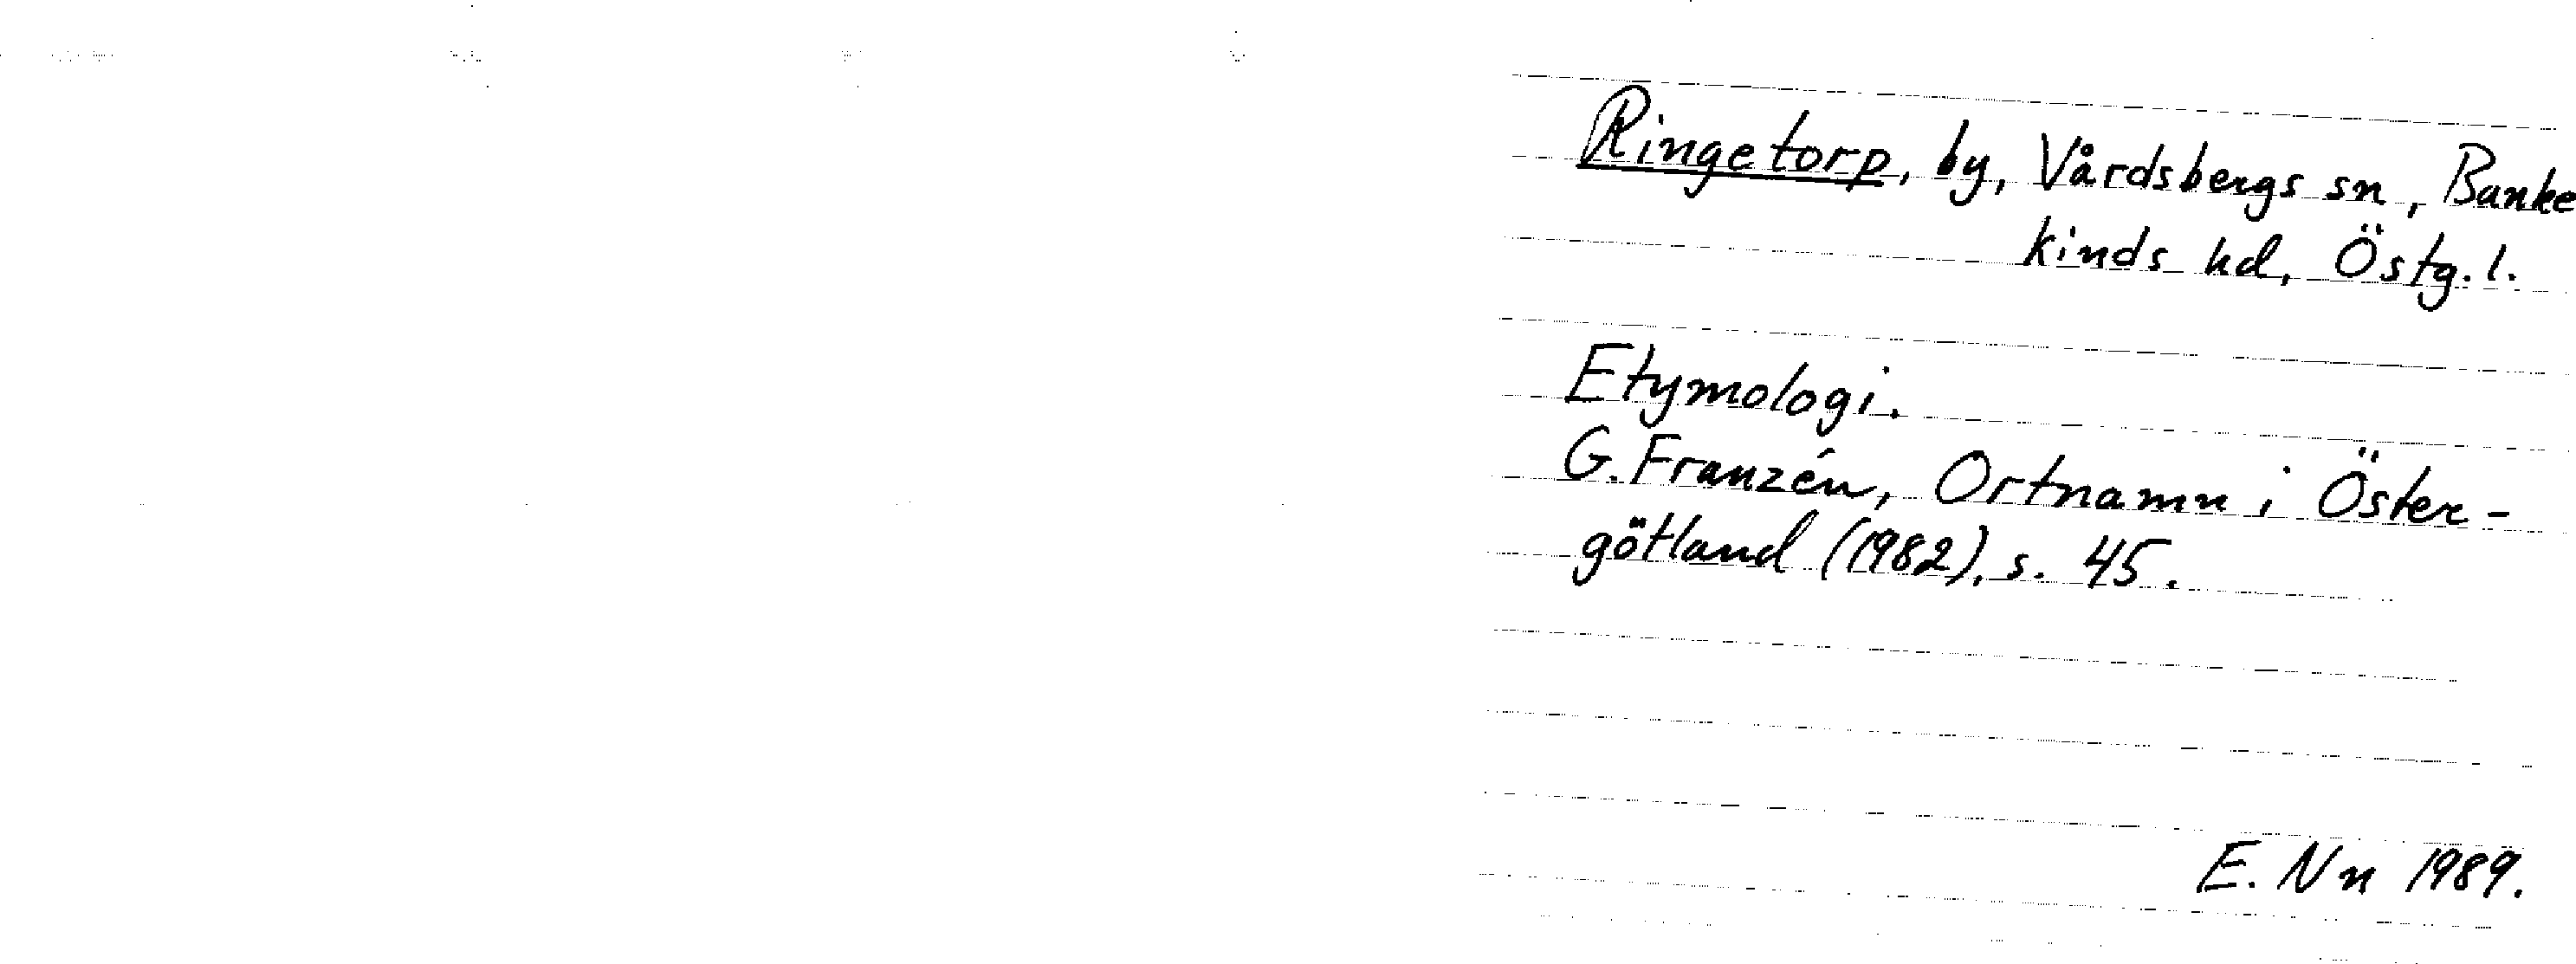 Ringetorp, by, Vårdsbergs sn, Banke
kinds hd, Östg. l.
Etymologi.
G. Franzén, Ortnamn i Öster-
götland (1982), s. 45.
E. Nn 1989.